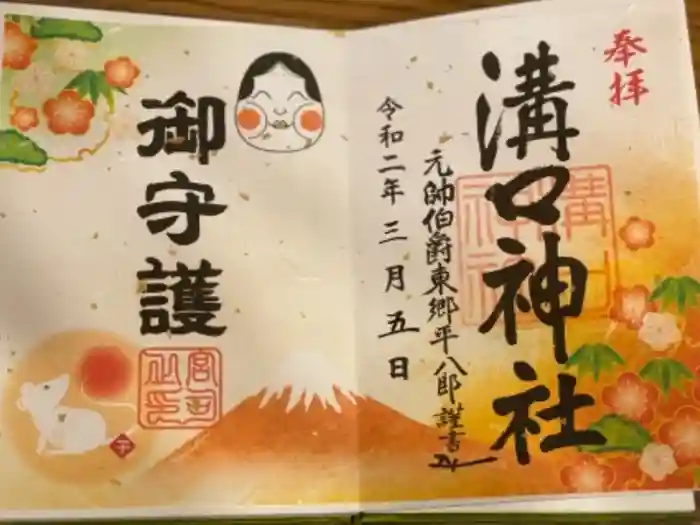 奉拝
溝口神社
元帥伯爵東郷平八郎謹書
令和二年三月五日
御守護
子